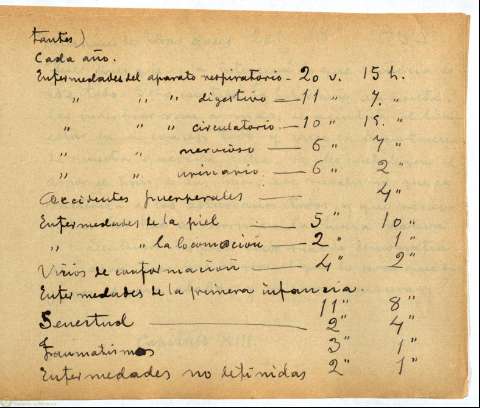 tantes)
Cada año.
Enfermedades del aparato respiratorio - 20 v. 15 h.
" " " digestivo — 11 " 7. "
" " " circulatorio — 10 " 15. "
" " nervioso — 6 " 7 "
" " urinario — 6 " 2 "
Accidentes puerperales — 4 "
Enfermedades de la piel — 5 " 10 "
" " la locomoción — 2 " 1 "
Vicios de conformación — 4 " 2 "
Enfermedades de la primera infancia.
11 " 8 "
Senectud — 2 " 4 "
Traumatismos 3 " 1 "
Enfermedades no definidas 2 " 1 "